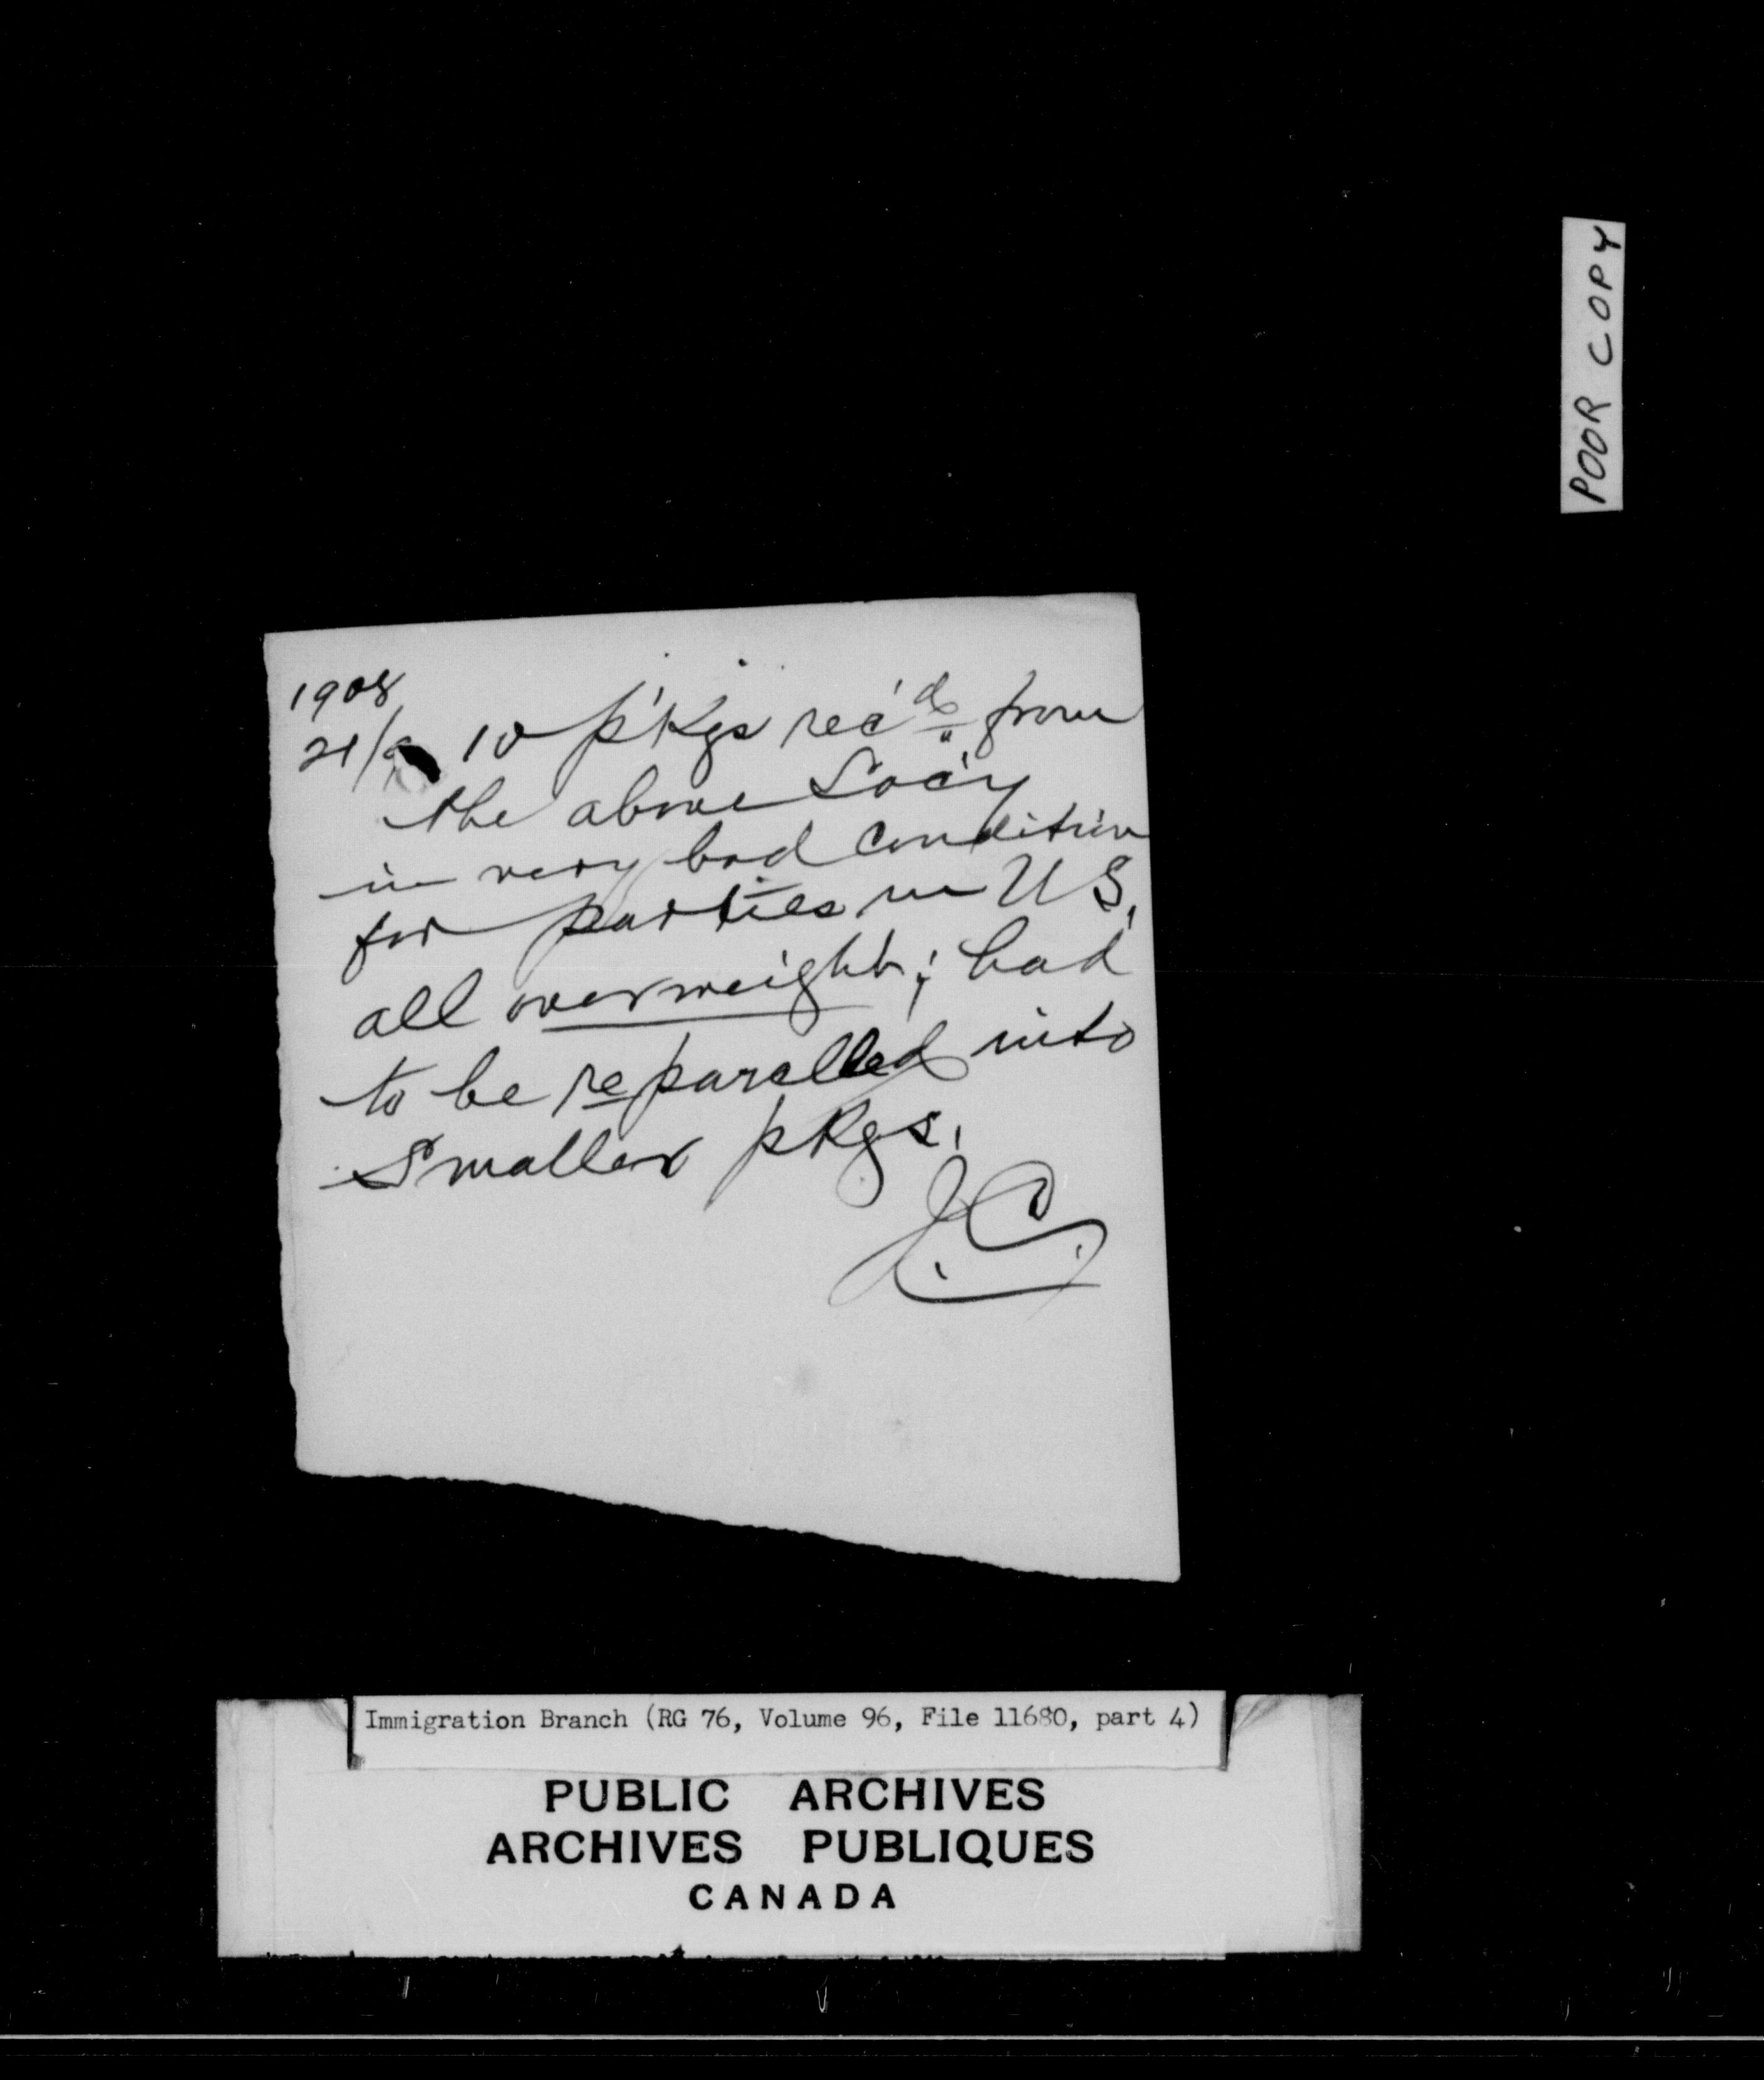 POOR COPY
1908
21/9 10 p'kgs rec'd from
the above Soc'y
in very bad condition
for parties in U S,
all overweight; had
to be reparcelled into
smaller pkgs.
J.C.
Immigration Branch (RG 76, Volume 96, File 11680, part 4)
PUBLIC ARCHIVES
ARCHIVES PUBLIQUES
CANADA